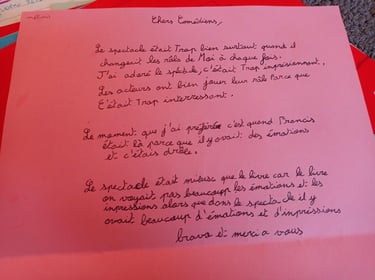 Chers Comédiens,
Le spectacle était Trop bien surtout quand il
changeait les rôls de Moi à chaque fois.
J'ai adoré le spéctacle, c'était Trop impréssionnant.
Les acteurs ont bien jouer leur rôle Parce que
C'était Trop interressant.
Le moment que j'ai préférée c'est quand Brancis
était là parce que il y avait des émotions
et c'étais drôle.
Le spectacle était mieux que le livre car le livre
on voyait pas beaucoup les émotions et les
inpressions alors que dans le spectacle il y
avait beaucoup d'émotions et d'impressions
bravo et merci a vous